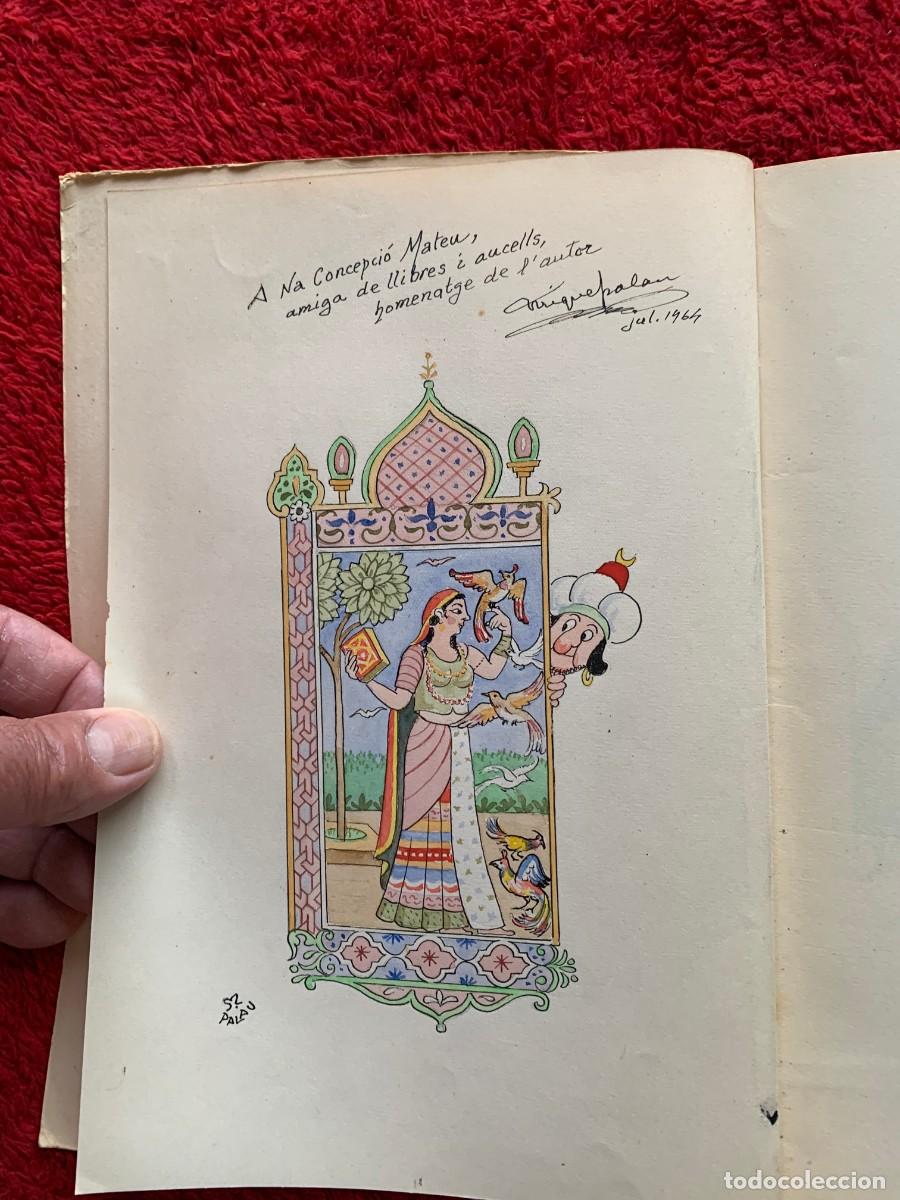 A Na Concepció Mateu,
amiga de llibres i aucells,
homenatge de l'autor
jul. 1964
PALAU
todocoleccion